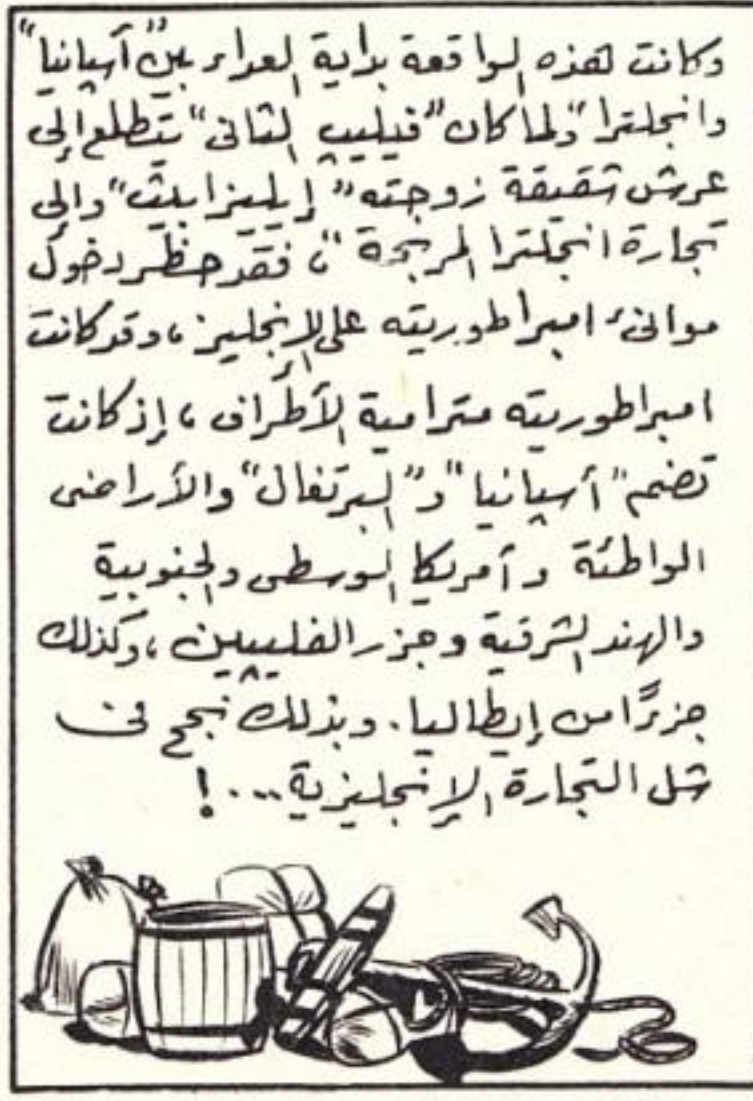 وكانت هذه الواقعة بداية العداء بين "أسبانيا"
وانجلترا" ولما كان "فيليب الثاني" يتطلع إلى
عرش شقيقة زوجته "إليزابيث" وإلى
تجارة انجلترا المربحة"، فقد حظر دخول
موانئ امبراطوريته على الإنجليز، وقد كانت
امبراطوريته مترامية الأطراف، إذ كانت
تضم "أسبانيا" و"البرتغال" والأراضى
الواطئة وأمريكا الوسطى والجنوبية
والهند الشرقية وجزر الفليبين، وكذلك
جزءًا من إيطاليا. وبذلك نجح فى
شل التجارة الإنجليزية...!